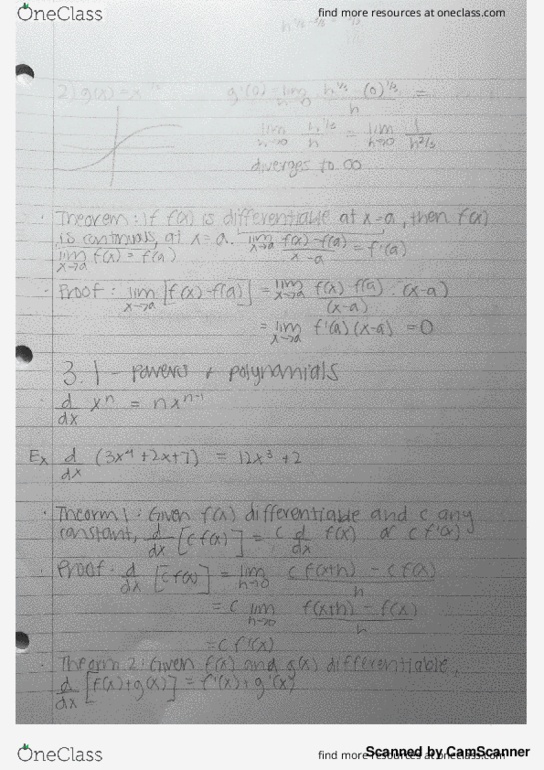 OneClass find more resources at oneclass.com
2) g(x) = x^1/3 g'(0) = lim h→0 h^1/3 - (0)^1/3 / h =
lim h→0 h^1/3 / h = lim h→0 1 / h^2/3
diverges to ∞
· Theorem: If f(x) is differentiable at x=a, then f(x)
is continuous, at x=a. lim x→a f(x)-f(a) / x-a = f'(a)
lim x→a f(x) = f(a)
· Proof: lim x→a [f(x)-f(a)] = lim x→a f(x)-f(a) / (x-a) · (x-a)
= lim x→a f'(a)(x-a) = 0
3.1 - powers + polynomials
· d/dx x^n = nx^n-1
Ex d/dx (3x^4 + 2x + 7) = 12x^3 + 2
· Theorm 1: Given f(x) differentiable and c any
constant, d/dx [cf(x)] = c d/dx f(x) or cf'(x)
· Proof: d/dx [cf(x)] = lim h→0 cf(x+h) - cf(x) / h
= c lim h→0 f(x+h) - f(x) / h
= cf'(x)
· Theorm 2: Given f(x) and g(x) differentiable,
d/dx [f(x)+g(x)] = f'(x)+g'(x)
OneClass find more resources at oneclass.com
Scanned by CamScanner